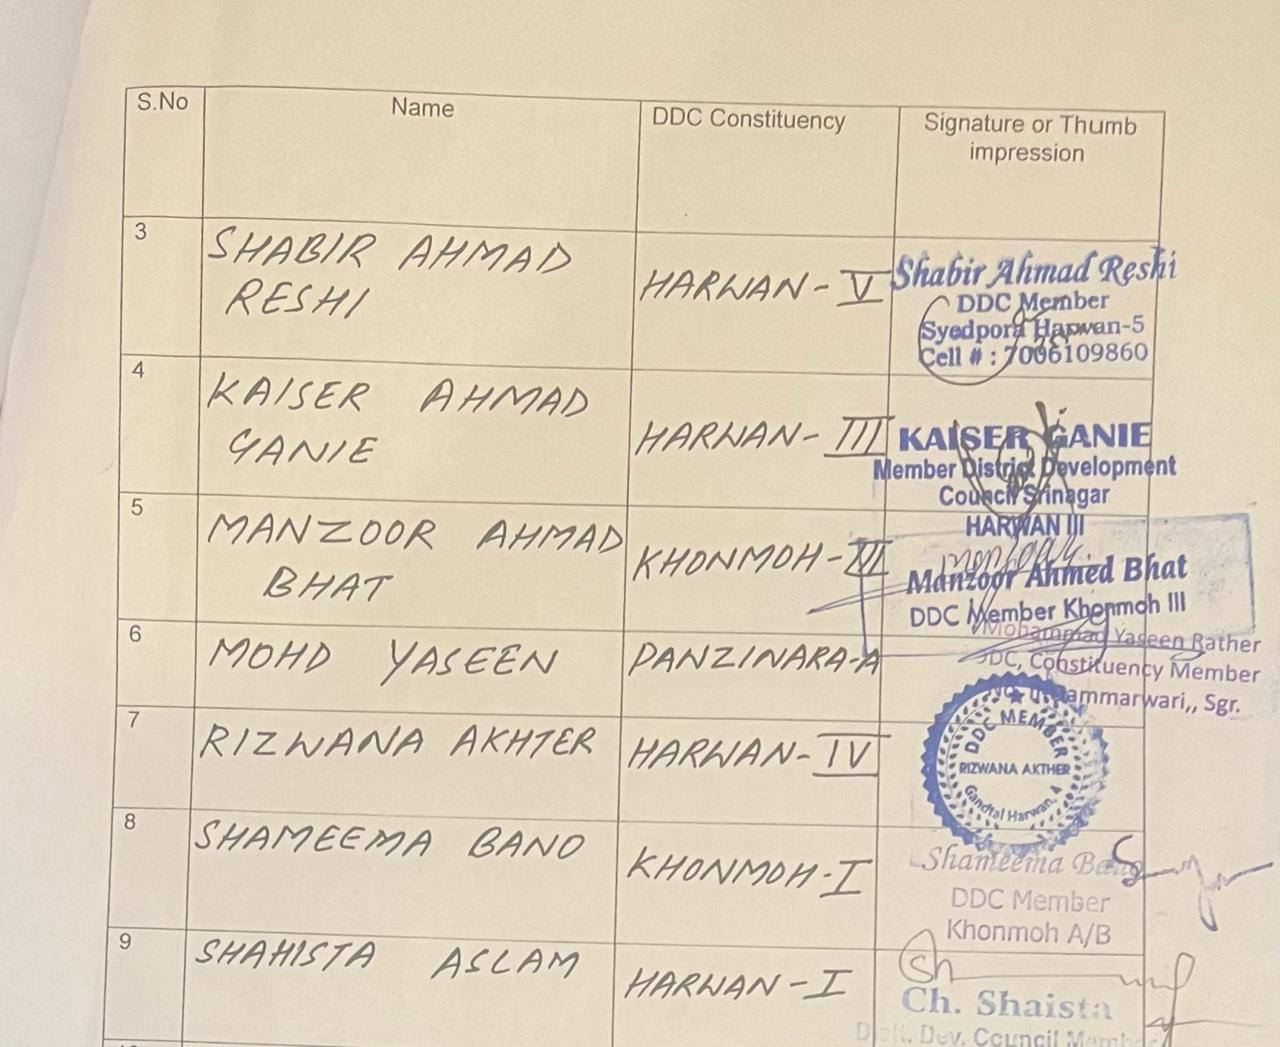 S.No Name DDC Constituency Signature or Thumb
impression
3 SHABIR AHMAD
RESHI
HARWAN-V
Shabir Ahmad Reshi
DDC Member
Syedpora Harwan-5
Cell # : 7006109860
4 KAISER AHMAD
GANIE
HARWAN-III
KAISER GANIE
Member District Development
Council Srinagar
HARWAN III
5 MANZOOR AHMAD
BHAT
KHONMOH-III
Manzoor Ahmed Bhat
DDC Member Khonmoh III
6 MOHD YASEEN
PANZINARA-A
Mohammad Yaseen Rather
DDC, Constituency Member
Sgr.
7 RIZWANA AKHTER
HARWAN-IV
DDC MEMBER
RIZWANA AKTHER
Gandtal Harwan, A
8 SHAMEEMA BANO
KHONMOH-I
Shameema Bano
DDC Member
Khonmoh A/B
9 SHAHISTA ASLAM
HARWAN-I
Ch. Shaista
Distt. Dev. Council Member